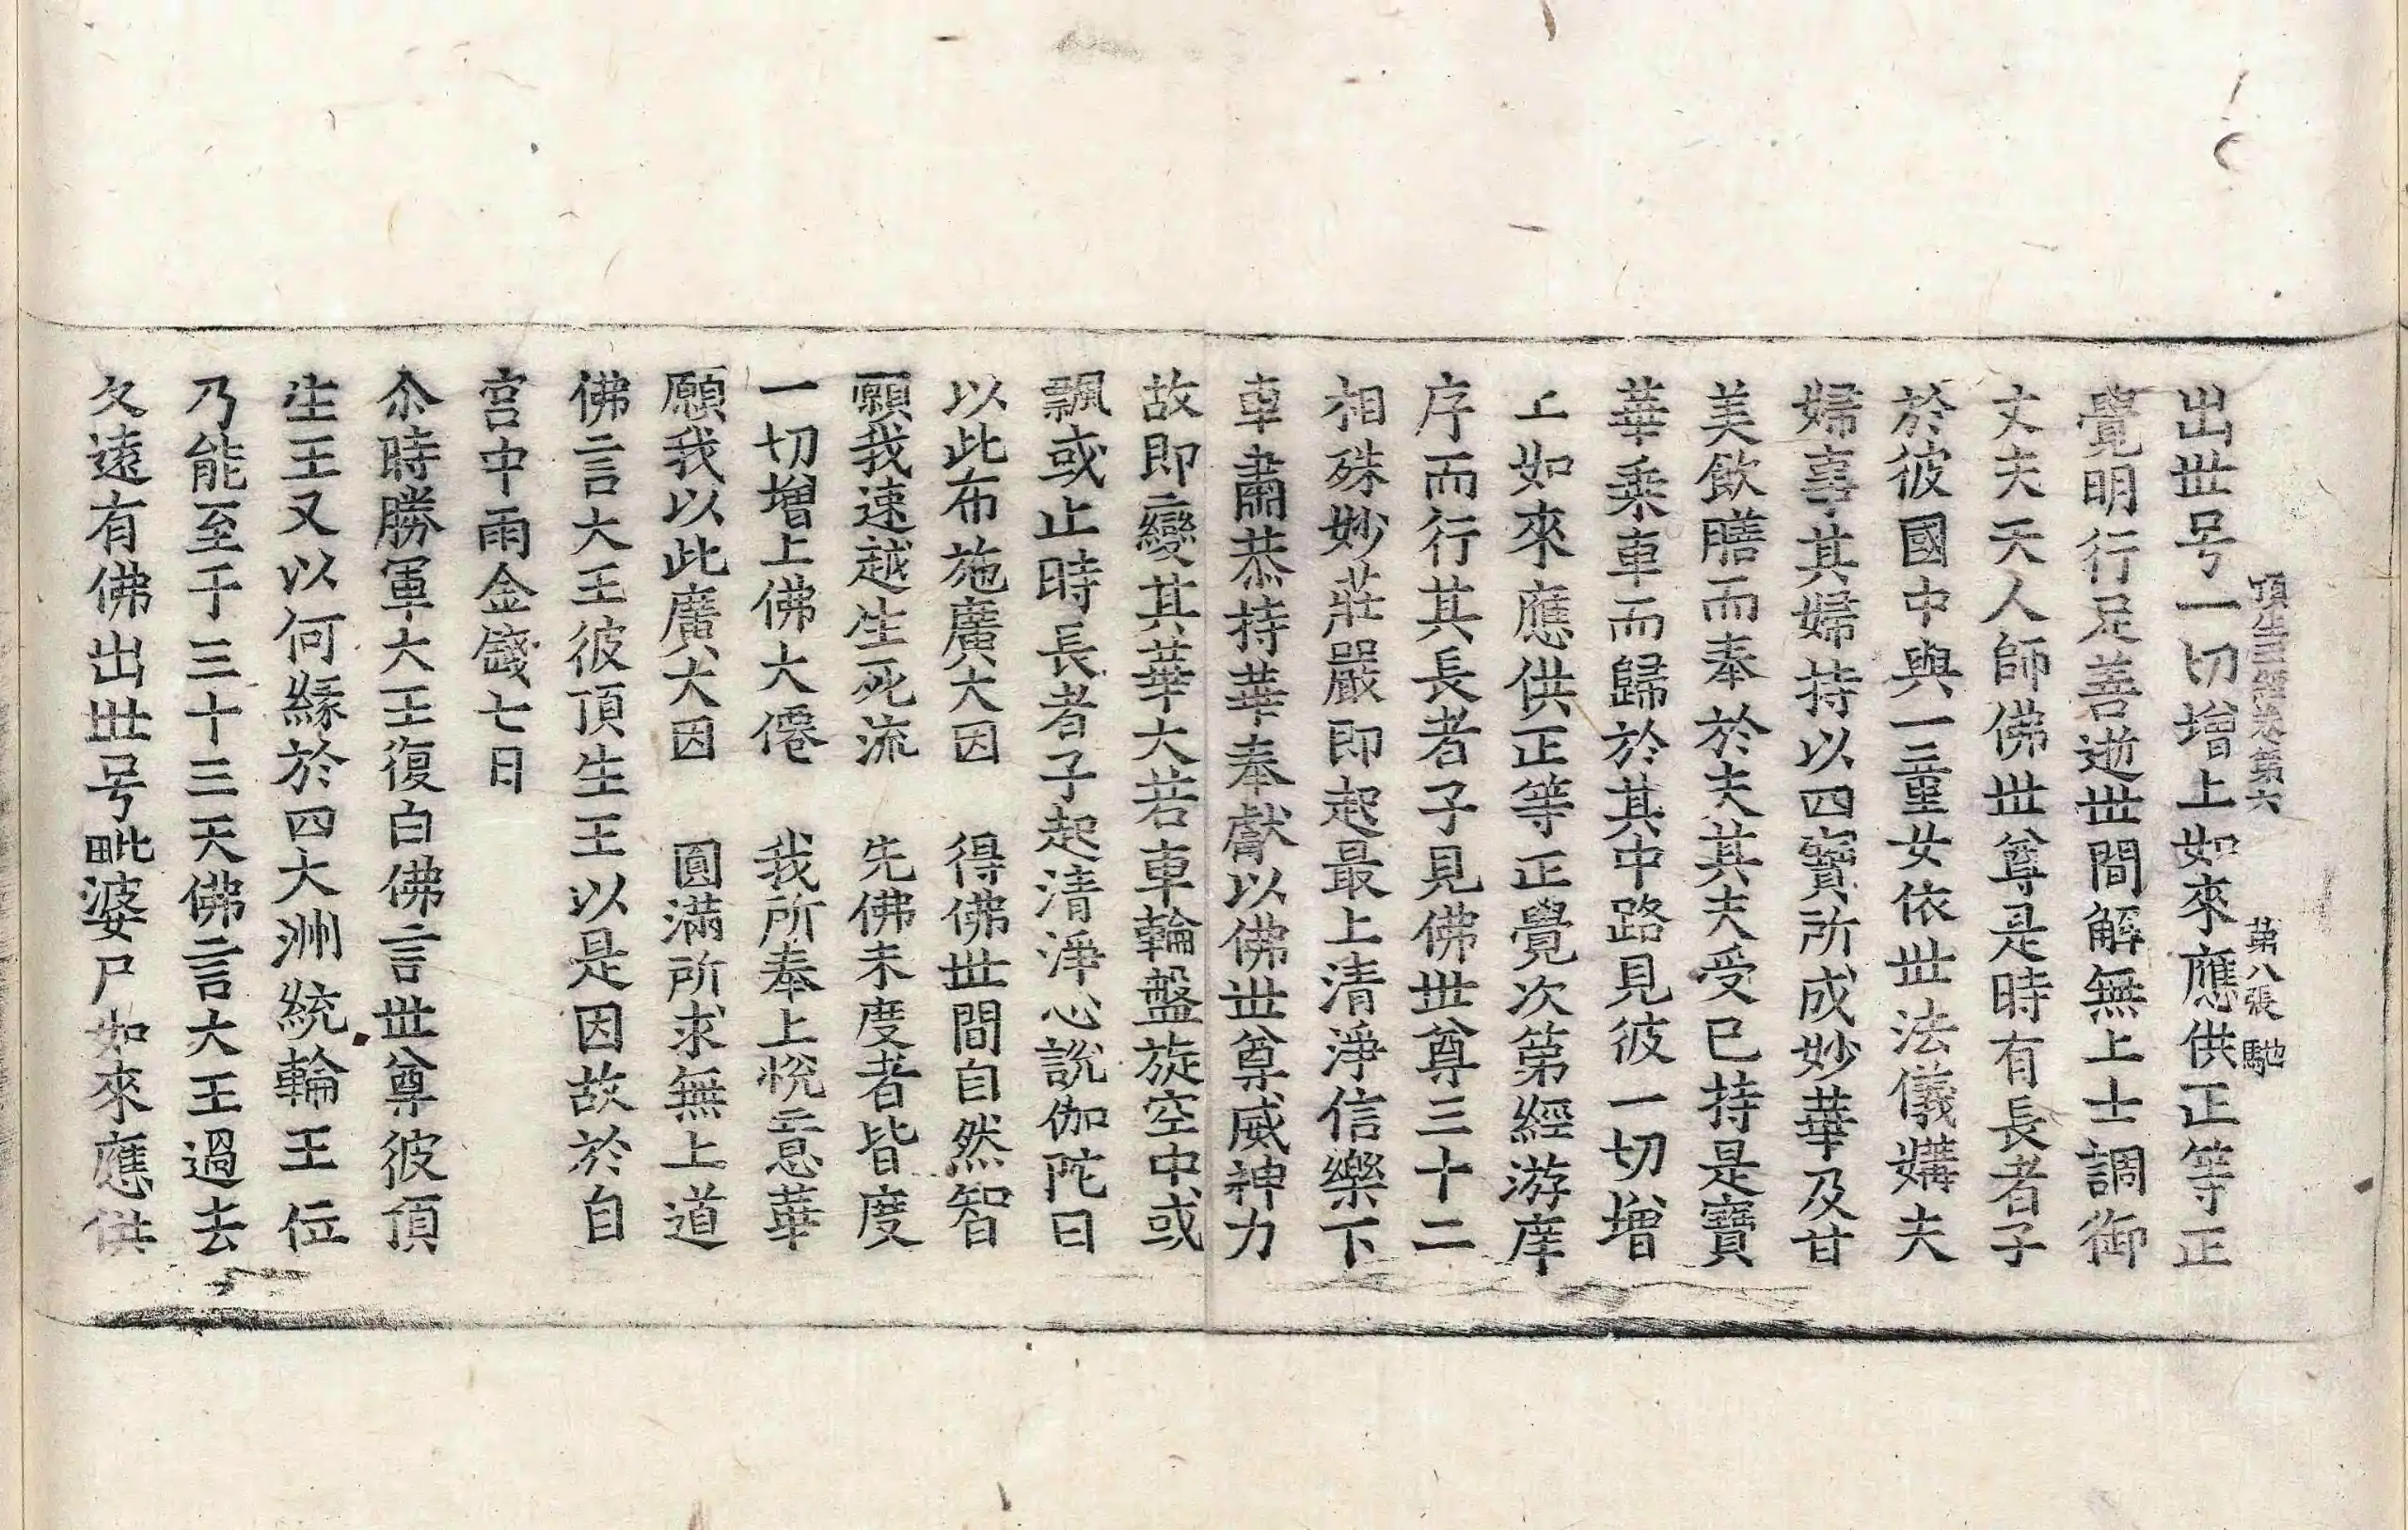 頂生王經卷第六　第八張　馳
出世号一切增上如來應供正等正
覺明行足善逝世間解無上士調御
丈夫天人師佛世尊是時有長者子
於彼國中與一童女依世法儀媾夫
婦事其婦持以四寶所成妙華及甘
美飲膳而奉於夫其夫受已持是寶
華乘車而歸於其中路見彼一切增
上如來應供正等正覺次第經游庠
序而行其長者子見佛世尊三十二
相殊妙莊嚴即起最上清淨信樂下
車肅恭持華奉獻以佛世尊威神力
故即變其華大若車輪盤旋空中或
飄或止時長者子起清淨心說伽陀曰
以此布施廣大因　得佛世間自然智
願我速越生死流　先佛未度者皆度
一切增上佛大僊　我所奉上悅意華
願我以此廣大因　圓滿所求無上道
佛言大王彼頂生王以是因故於自
宮中雨金錢七日
尒時勝軍大王復白佛言世尊彼頂
生王又以何緣於四大洲統輪王位
乃能至于三十三天佛言大王過去
久遠有佛出世号毗婆尸如來應供